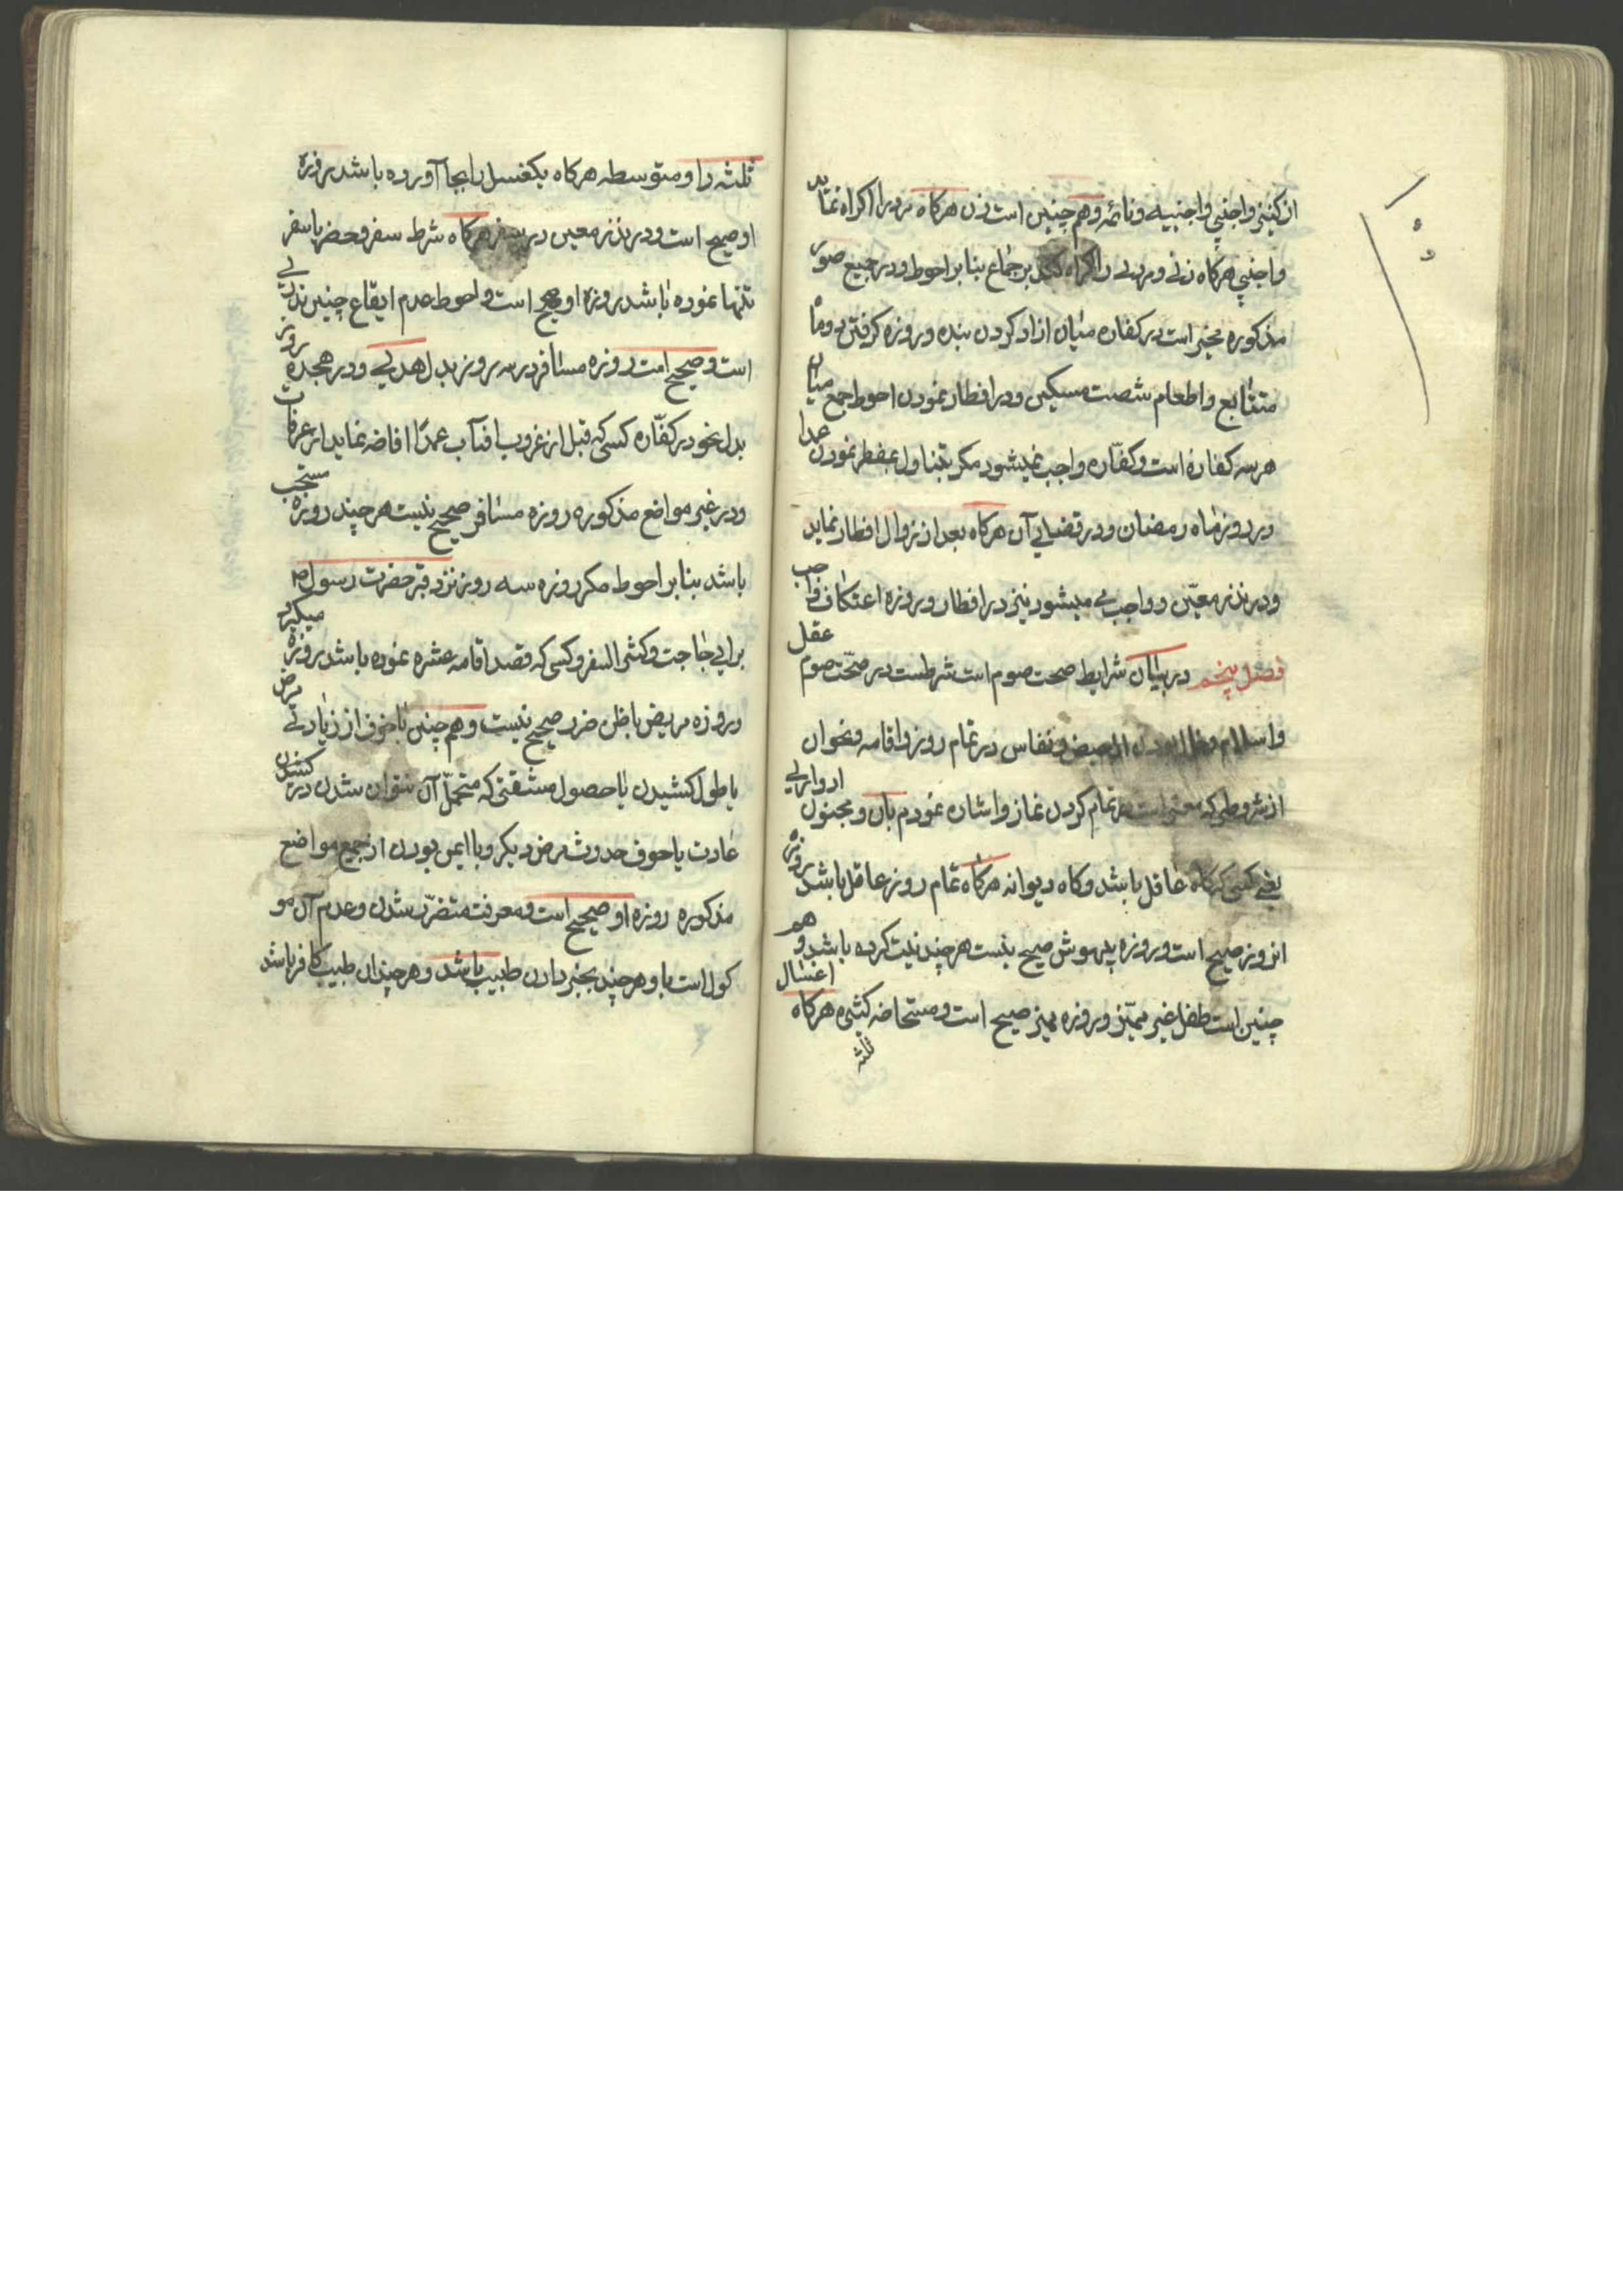 از کنیز و اجنبی و اجنبیه و نائمه و هم چنین است زن هرکاه مرد را اکراه نماید
و اجنبی هرکاه زنی و مردی را اکراه کند بر جماع بنا بر احوط و در جمیع صور
مذکوره مخیر است در کفاره میان ازاد کردن بنده و روزه کرفتن دو ماه
متتابع و اطعام شصت مسکین و در افطار نمودن احوط جمع میان
هر سه کفاره است و کفّاره واجب نمیشود مکر بتناول مفطر نمودن عمدا
در روز ماه رمضان و در قضای آن هرکاه بعد از زوال افطار نماید
و در نذر معیّن و واجب می میشود نیز در افطار و روزه اعتکاف واجب
فصل پنجم در بیان شرایط صحت صوم است شرطست در صحّت صوم عقل
و اسلام و خالی بودن از حیض و نفاس در تمام روز و اقامه و نحوان
از شروطی که معتبر است در تمام کردن نماز و اشاره نمودم بان و مجنون ادواری
یعنی کسی که کاه عاقل باشد و کاه دیوانه هرکاه تمام روز عاقل باشد روزه
انروز صحیح است و روزه بیهوش صحیح نیست هرچند نیت کرده باشد و هم
چنین است طفل غیر ممیّز و روزه ممیز صحیح است و مستحاضه کثیره هرکاه اغسال
ثلثه
ثلثه را و متوسطه هرکاه یکغسل را بجا آورده باشد روزه
او صحیح است و در نذر معین در سفر هرکاه شرط سفر و حضر یا سفر
تنها نموده باشد روزه او صحیح است و احوط عدم ایقاع چنین نذری
است و صحیح است روزه مسافر در سه روز بدل هدی و در هجده روز
بدل نحو در کفّاره کسی که قبل از غروب افتاب عمدًا افاضه نماید از عرفات
و در غیر مواضع مذکوره روزه مسافر صحیح نیست هرچند روزه مستحب
باشد بنا بر احوط مکر روزه سه روز نزد قبر حضرت رسول ص
برای حاجت و کثیر السفر و کسی که قصد اقامه عشره نموده باشد روزه میکیرد
و روزه مریض با ظن ضرر صحیح نیست و هم چنین با خوف از زیادتی مرض
یا طول کشیدن یا حصول مشقتی که متحمّل آن نتوان شدن در
عادت یا خوف حدوث مرض دیکر و با ایمن بودن از جمیع مواضع
مذکوره روزه او صحیح است و معرفت متضرّر شدن و عدم آن مو
کول است باو هرچند بخبر دادن طبیب باشد و هرچند ان طبیب کافر باشد